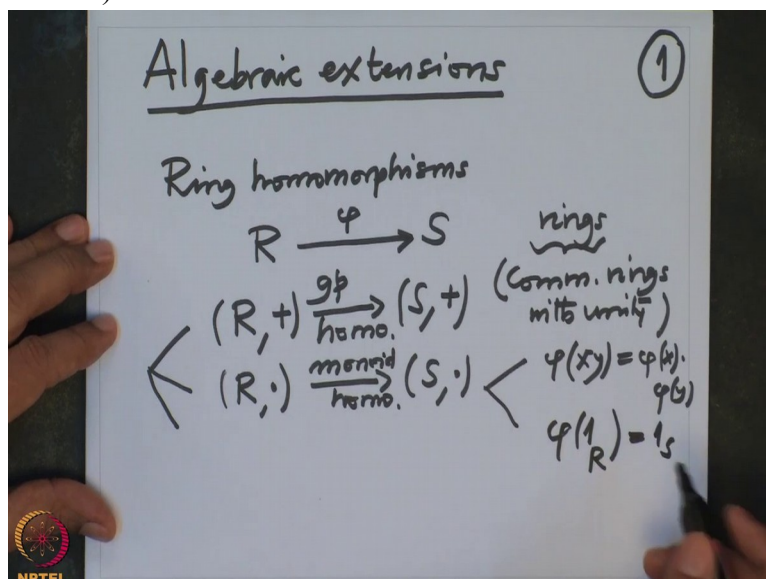 )
Algebraic extensions
1
Ring homomorphisms
R φ→ S
rings
(Comm. rings
with unity)
(R,+) gp homo.→ (S,+)
(R,·) monoid homo.→ (S,·)
φ(xy) = φ(x)·
φ(y)
φ(1_R) = 1_S
NPTEL